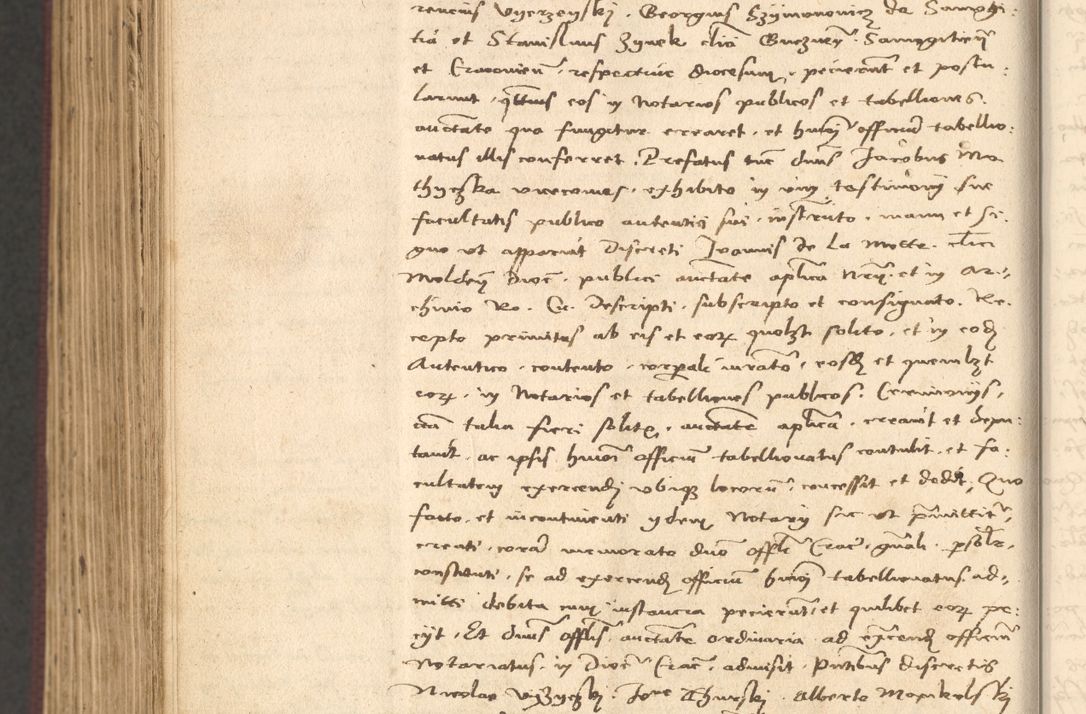 rencius Vyerzeyskj . Georgius Szymonowicz de Samogi:
tia et Stanislaus Zynek clici Samogitien
et Cracovien . respective diocesum, pecierunt et postu:
larunt . qtenus eos in Notarios publicos et tabelliones
auctate qua fungitur crearet . et huiusmodi officium tabellio:
natus illis conferret . Prefatus tunc dnus Jacobus Mo
thyczka vicecomes . exhibito in vim testimonij sue
facultatis publico autentici sui . instruto . manu et si:
gno ut apparuit Discreti Joannis de La Motte . clici
dioc . publici auctate aplica Nrij . et in Ar:
chivio Ro . Cu . Descripti . subscripto et consignato . Re:
cepto primitus ab eis et eorum quolibet solito . et in eodem
Autentico . contento . corporali iurato . eosdem et quemlibet
eorum . in Notarios et tabelliones publicos . Cerimonijs .
circa talia fieri solitis . auctate aplica . creavit et depu:
tavit . ac ipsis huiusmodi officium tabellionatus contulit . et fa:
cultatem exercendi ubique locorum . concessit et dedit . Quo
facto . et incontinenti ijdem Notarij sic ut premittitur
creati . coram memorato dno offli Crac . gnali . psonaliter
constituti . se ad exercendum officium huiusmodi tabellionatus . ad:
mitti debita cum instancia pecierunt . et quilibet eorum pe:
cijt . Et dnus offlis . auctate ordinaria . ad exercendum officium
Notariatus . in Dioc Crac . admisit . Pntibus discretis
Nicolao . Joe . Alberto